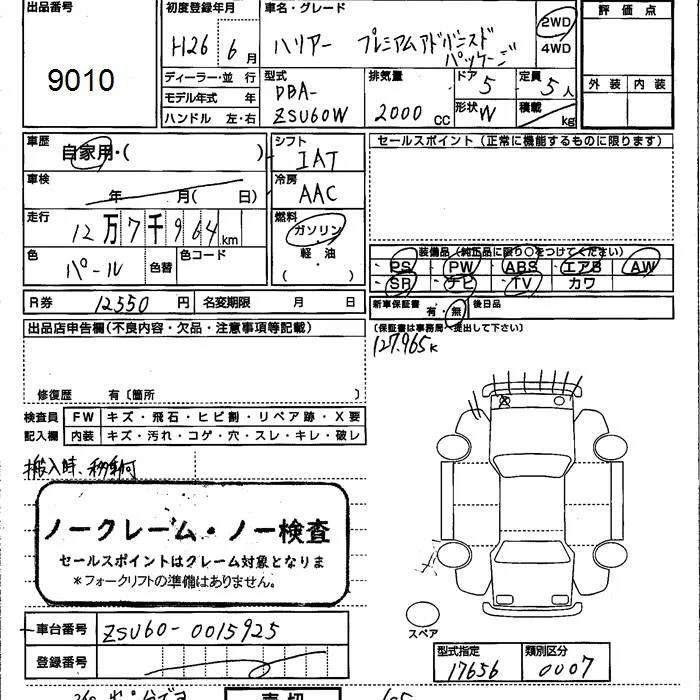 出品番号
9010
初度登録年月
H26 6月
車名・グレード
ハリアー プレミアムアドバンスド
パッケージ
2WD
4WD
評価点
外装 内装
ディーラー・並行
モデル年式 年
ハンドル 左・右
型式
DBA-
ZSU60W
排気量
2000 CC
ドア 5
形状 W
定員 5人
積載 kg
車歴
自家用・( )
シフト
IAT
車検
年 月( 日)
冷房
AAC
走行
12万7千964km
燃料
ガソリン
軽・油
( )
色
パール
色替
色コード
セールスポイント(正常に機能するものに限ります)
装備品(純正品に限り○をつけてください)
PS・PW・ABS・エアB・AW
SR・ナビ・TV・カワ
R券 12550円 名変期限 月 日
新車保証書 有・無 後日品
(保証書は事務局へ提出して下さい)
127.965K
出品店申告欄(不良内容・欠品・注意事項等記載)
修復歴 有〔箇所 〕
検査員 FW キズ・飛石・ヒビ割・リペア跡・X要
記入欄 内装 キズ・汚れ・コゲ・穴・スレ・キレ・破レ
搬入時、
ノークレーム・ノー検査
セールスポイントはクレーム対象となりま
*フォークリフトの準備はありません。
スペア
車台番号 ZSU60-0015925
登録番号
型式指定 類別区分
17656 0007